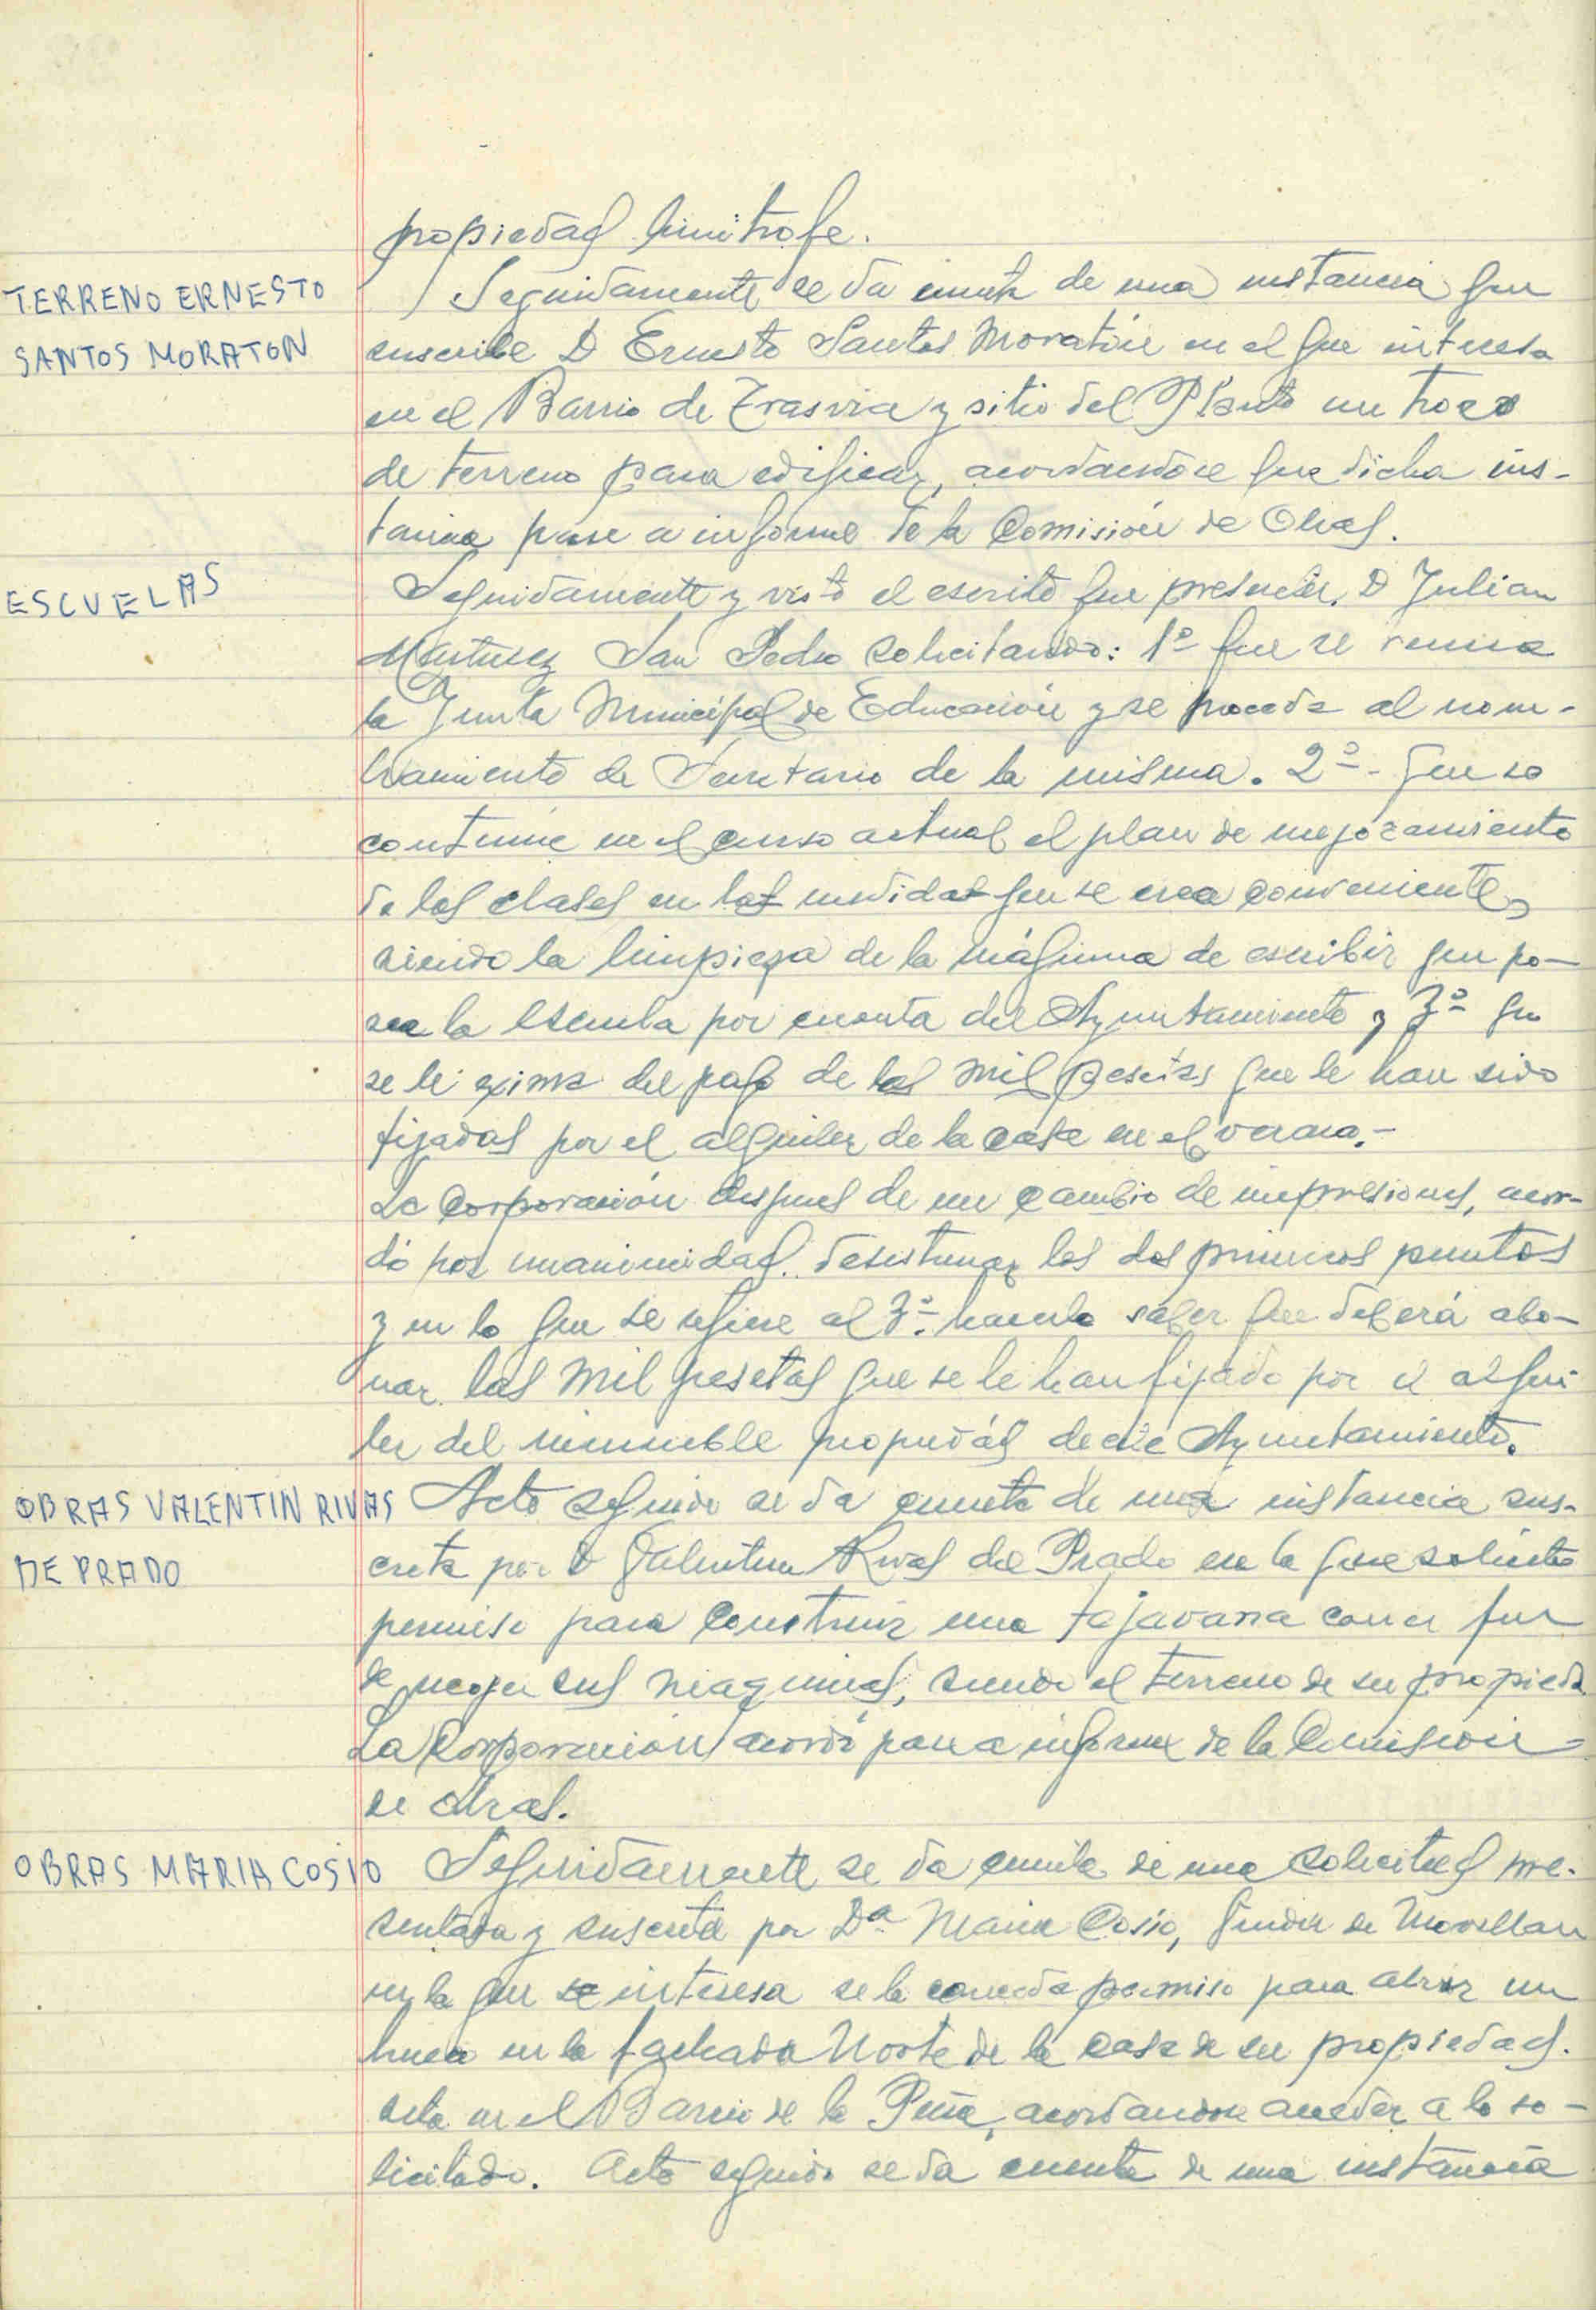 propiedad limitrofe.
TERRENO ERNESTO
SANTOS MORATON
Seguidamente se da cuenta de una instancia que
suscribe D Ernesto Santos Moratón en el que interesa
en el Barrio de Trasvia y sitio del Planto un trozo
de terreno para edificar, acordandose que dicha ins-
tancia pase a informe de la Comisión de Obras.
ESCUELAS
Seguidamente y visto el escrito que presenta D Julian
Martinez San Pedro solicitando: 1º que se reuna
la Junta Municipal de Educación y se proceda al nom-
bramiento de Secretario de la misma. 2º- que se
continue en el curso actual el plan de mejoramiento
de las clases en las medidas que se crea conveniente,
siendo la limpieza de la máquina de escribir que po-
sea la escuela por cuenta del Ayuntamiento y 3º que
se le exima del pago de las mil pesetas que le han sido
fijadas por el alquiler de la casa en el verano.-
La Corporación despues de un cambio de impresiones, acor-
dó por unanimidad desestimar los dos primeros puntos
y en lo que se refiere al 3º. hacerle saber que deberá abo-
nar las mil pesetas que se le han fijado por el alqui
ler del inmueble propiedad de este Ayuntamiento.
OBRAS VALENTIN RIVAS
DE PRADO
Acto seguido se da cuenta de una instancia sus-
crita por D Valentin Rivas del Prado en la que solicita
permiso para construir una tejavana con el fin
de recoger sus maquinas, siendo el terreno de su propieda
La Corporación acordó pase a informe de la Comision
de obras.
OBRAS MARIA COSIO
Seguidamente se da cuenta de una solicitud pre-
sentada y suscrita por Dª Maria Cosio, de Movellan
en la que se interesa se le conceda permiso para abrir un
hueco en la fachada Norte de la casa de su propiedad.
sita en el Barrio de la Peña, acordandose acceder a lo so-
licitado. Acto seguido se da cuenta de una instancia